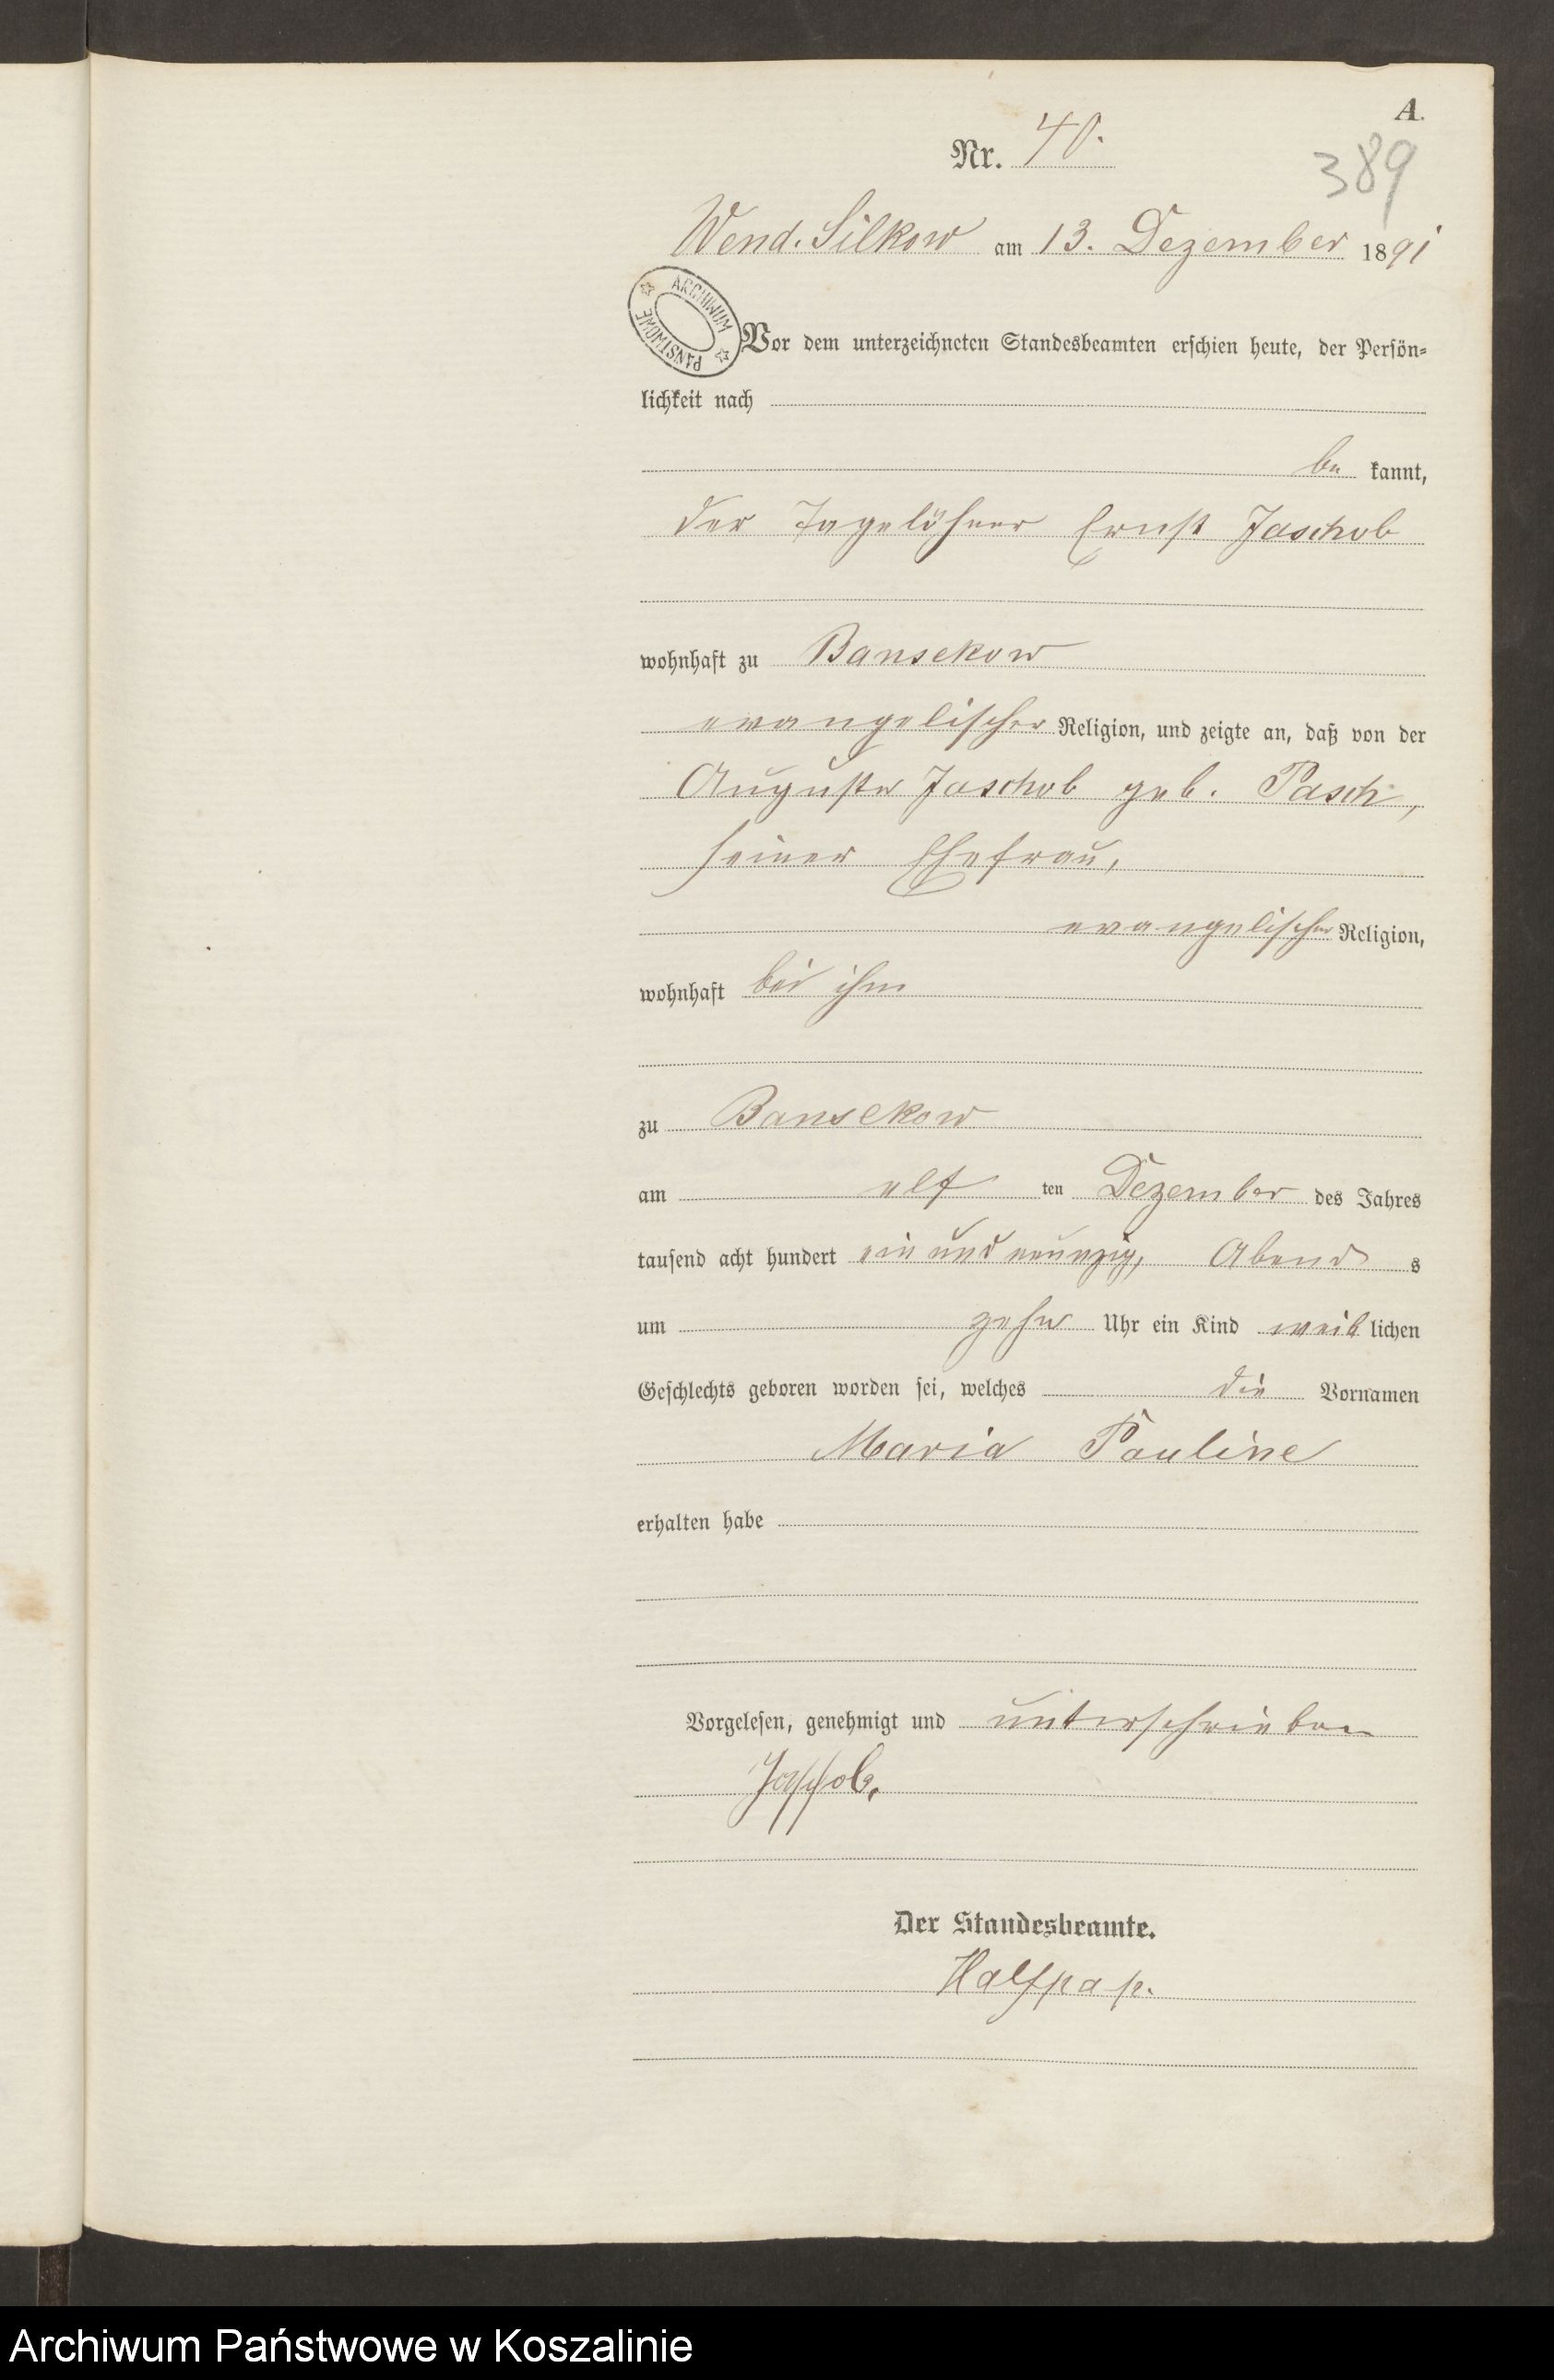 A.
Nr. 40.
389
Wend. Silkow am 13. Dezember 1891
ARCHIWUM PAŃSTWOWE
Vor dem unterzeichneten Standesbeamten erschien heute, der Persön=
lichkeit nach
be kannt,
der Tagelöhner Ernst Jaschob
wohnhaft zu Bansekow
evangelischer Religion, und zeigte an, daß von der
Auguste Jaschob geb. Pasch,
seiner Ehefrau,
evangelischer Religion,
wohnhaft bei ihm
zu Bansekow
am elf ten Dezember des Jahres
tausend acht hundert ein und neunzig, Abend s
um zehn Uhr ein Kind weib lichen
Geschlechts geboren worden sei, welches die Vornamen
Maria Pauline
erhalten habe
Vorgelesen, genehmigt und unterschrieben
Jaschob.
Der Standesbeamte.
Halfpap.
Archiwum Państwowe w Koszalinie